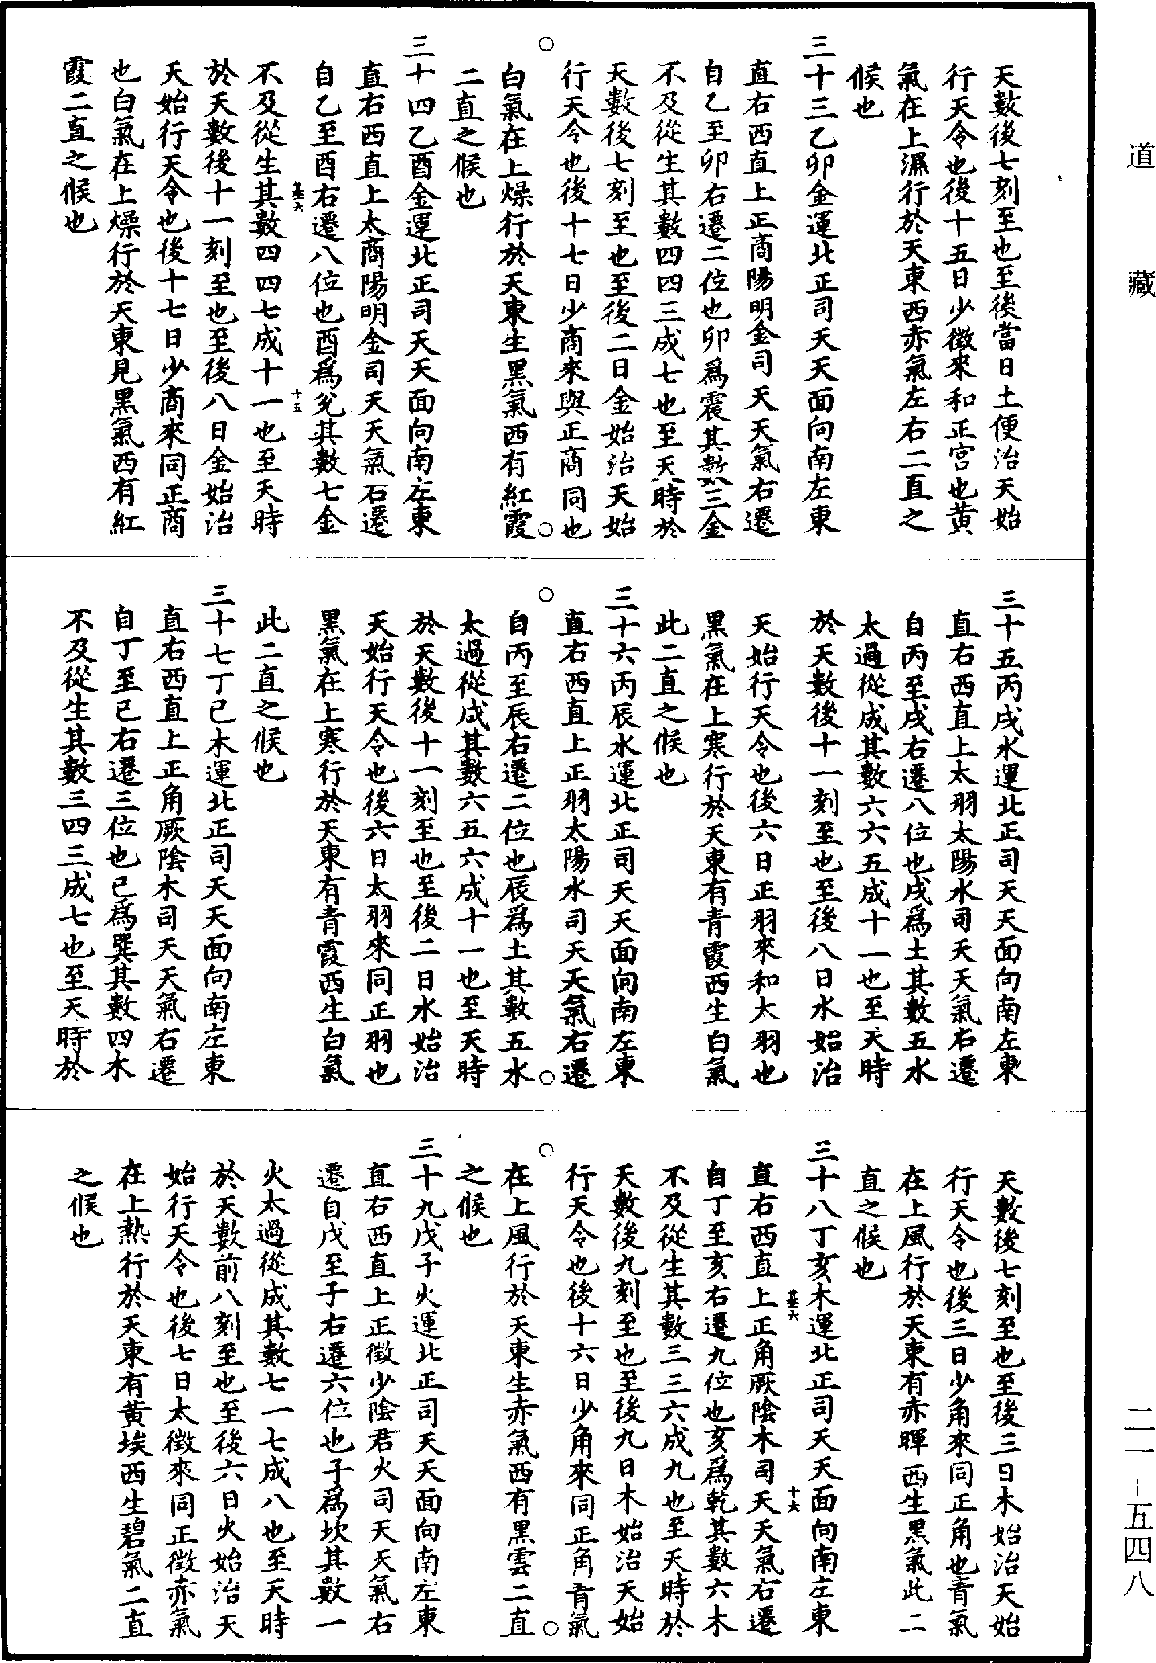 道藏
天數後七刻至也至後當日土便治天始
行天令也後十五日少徵來和正宮也黃
氣在上濕行於天東西赤氣左右二直之
候也
三十三乙卯金運北正司天天面向南左東
直右西直上正商陽明金司天天氣右遷
自乙至卯右遷二位也卯爲震其數三金
不及從生其數四四三成七也至天時於
天數後七刻至也至後二日金始治天始
行天令也後十七日少商來與正商同也
白氣在上燥行於天東生黑氣西有紅霞
二直之候也
三十四乙酉金運北正司天天面向南左東
直右西直上太商陽明金司天天氣右遷
自乙至酉右遷八位也酉爲兌其數七金
不及從生其數四四七成十一也至天時
於天數後十一刻至也至後八日金始治
天始行天令也後十七日少商來同正商
也白氣在上燥行於天東見黑氣西有紅
霞二直之候也
三十五丙戌水運北正司天天面向南左東
直右西直上太羽太陽水司天天氣右遷
自丙至戌右遷八位也戌爲土其數五水
太過從成其數六六五成十一也至天時
於天數後十一刻至也至後八日水始治
天始行天令也後六日正羽來和太羽也
黑氣在上寒行於天東有青霞西生白氣
此二直之候也
三十六丙辰水運北正司天天面向南左東
直右西直上正羽太陽水司天天氣右遷
自丙至辰右遷二位也辰爲土其數五水
太過從成其數六五六成十一也至天時
於天數後十一刻至也至後二日水始治
天始行天令也後六日太羽來同正羽也
黑氣在上寒行於天東有青霞西生白氣
此二直之候也
三十七丁巳木運北正司天天面向南左東
直右西直上正角厥陰木司天天氣右遷
自丁至巳右遷三位也巳爲巽其數四木
不及從生其數三四三成七也至天時於
天數後七刻至也至後三日木始治天始
行天令也後三日少角來同正角也青氣
在上風行於天東有赤暉西生黑氣此二
直之候也
三十八丁亥木運北正司天天面向南左東
直右西直上正角厥陰木司天天氣右遷
自丁至亥右遷九位也亥爲乾其數六木
不及從生其數三三六成九也至天時於
天數後九刻至也至後九日木始治天始
行天令也後十六日少角來同正角青氣
在上風行於天東生赤氣西有黑雲二直
之候也
三十九戊子火運北正司天天面向南左東
直右西直上正徵少陰君火司天天氣右
遷自戊至子右遷六位也子爲坎其數一
火太過從成其數七一七成八也至天時
於天數前八刻至也至後六日火始治天
始行天令也後七日太徵來同正徵赤氣
在上熱行於天東有黃埃西生碧氣二直
之候也
二一–五四八